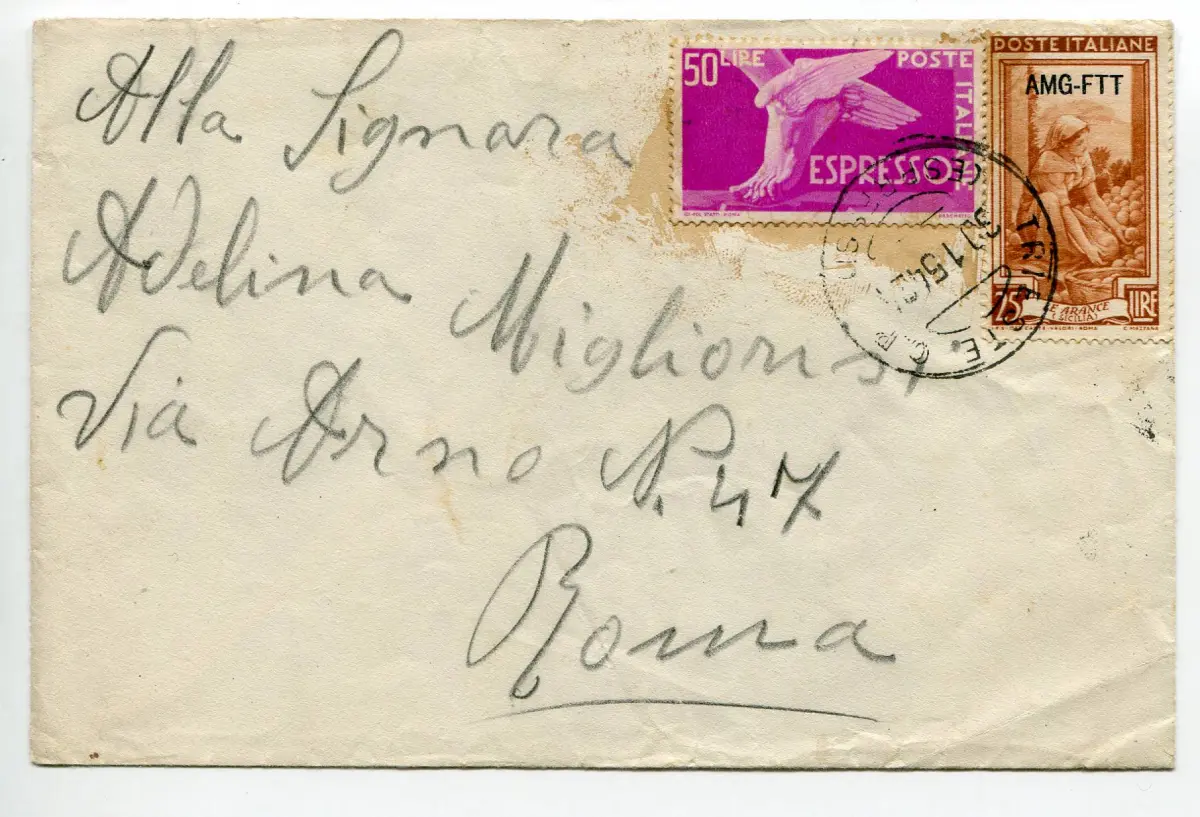 Alla Signora
Adelina Migliorisi
Via Arno N. 47
Roma
50 LIRE POSTE ITALIANE
ESPRESSO
POSTE ITALIANE
AMG-FTT
75 LIRE
LE ARANCE
(SICILIA)
TRIESTE C.P.